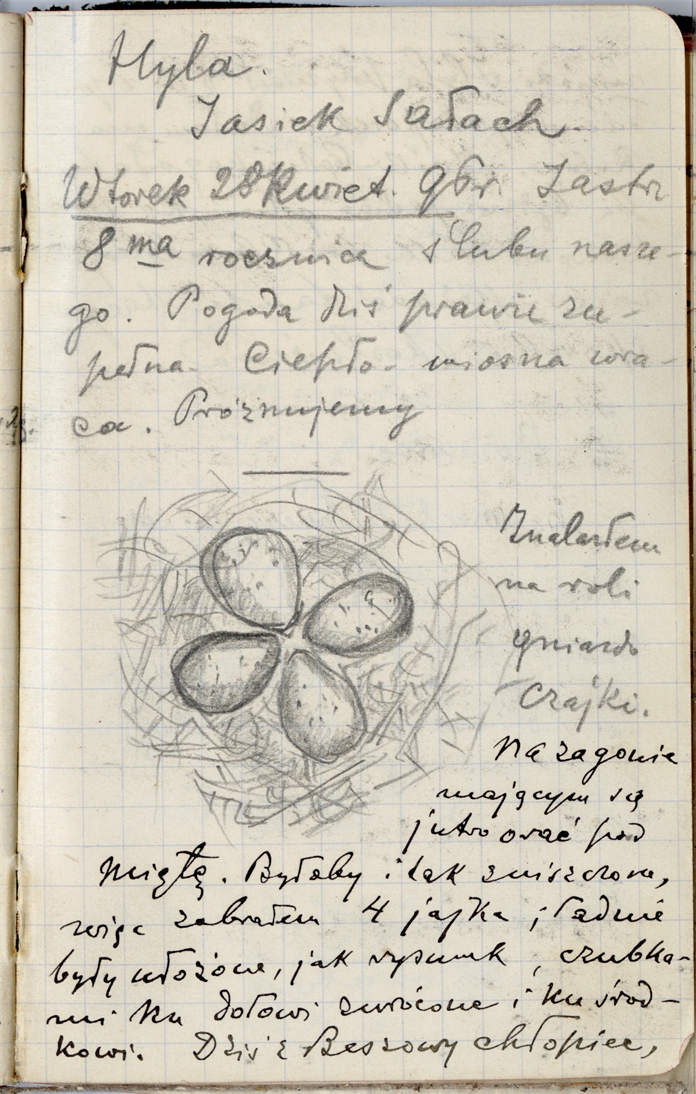 Hyla.
Jasiek Sałach.
Wtorek 28 Kwiet. 96r. Jastrz
8 ma rocznica ślubu nasze-
go. Pogoda dziś prawie zu-
pełna. Ciepło - wiosna wra-
ca. Próżnujemy
Znalazłem
na roli
gniazdo
Czajki.
Na zagonie
mającym się
jutro orać pod
Miętę. Byłoby i tak zniszczone,
więc zabrałem 4 jajka; ładnie
były ułożone, jak rysunek, czubka-
mi ku dołowi zwrócone i ku środ-
kowi. Dziś z Beszowy chłopiec,